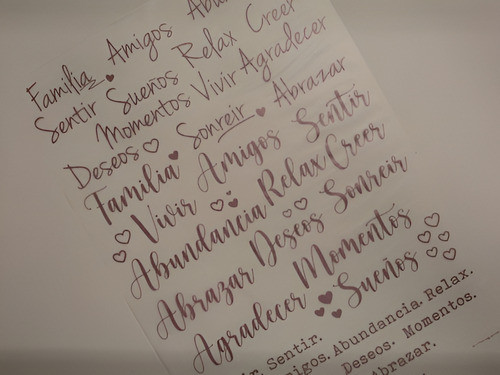 Familia Amigos
Sentir Sueños Relax Creer
Momentos Vivir Agradecer
Deseos Sonreir Abrazar
Familia Amigos Sentir
Vivir
Abundancia Relax Creer
Abrazar Deseos Sonreir
Agradecer Momentos
Sueños
Sentir.
Abundancia. Relax.
Deseos. Momentos.
Abrazar.